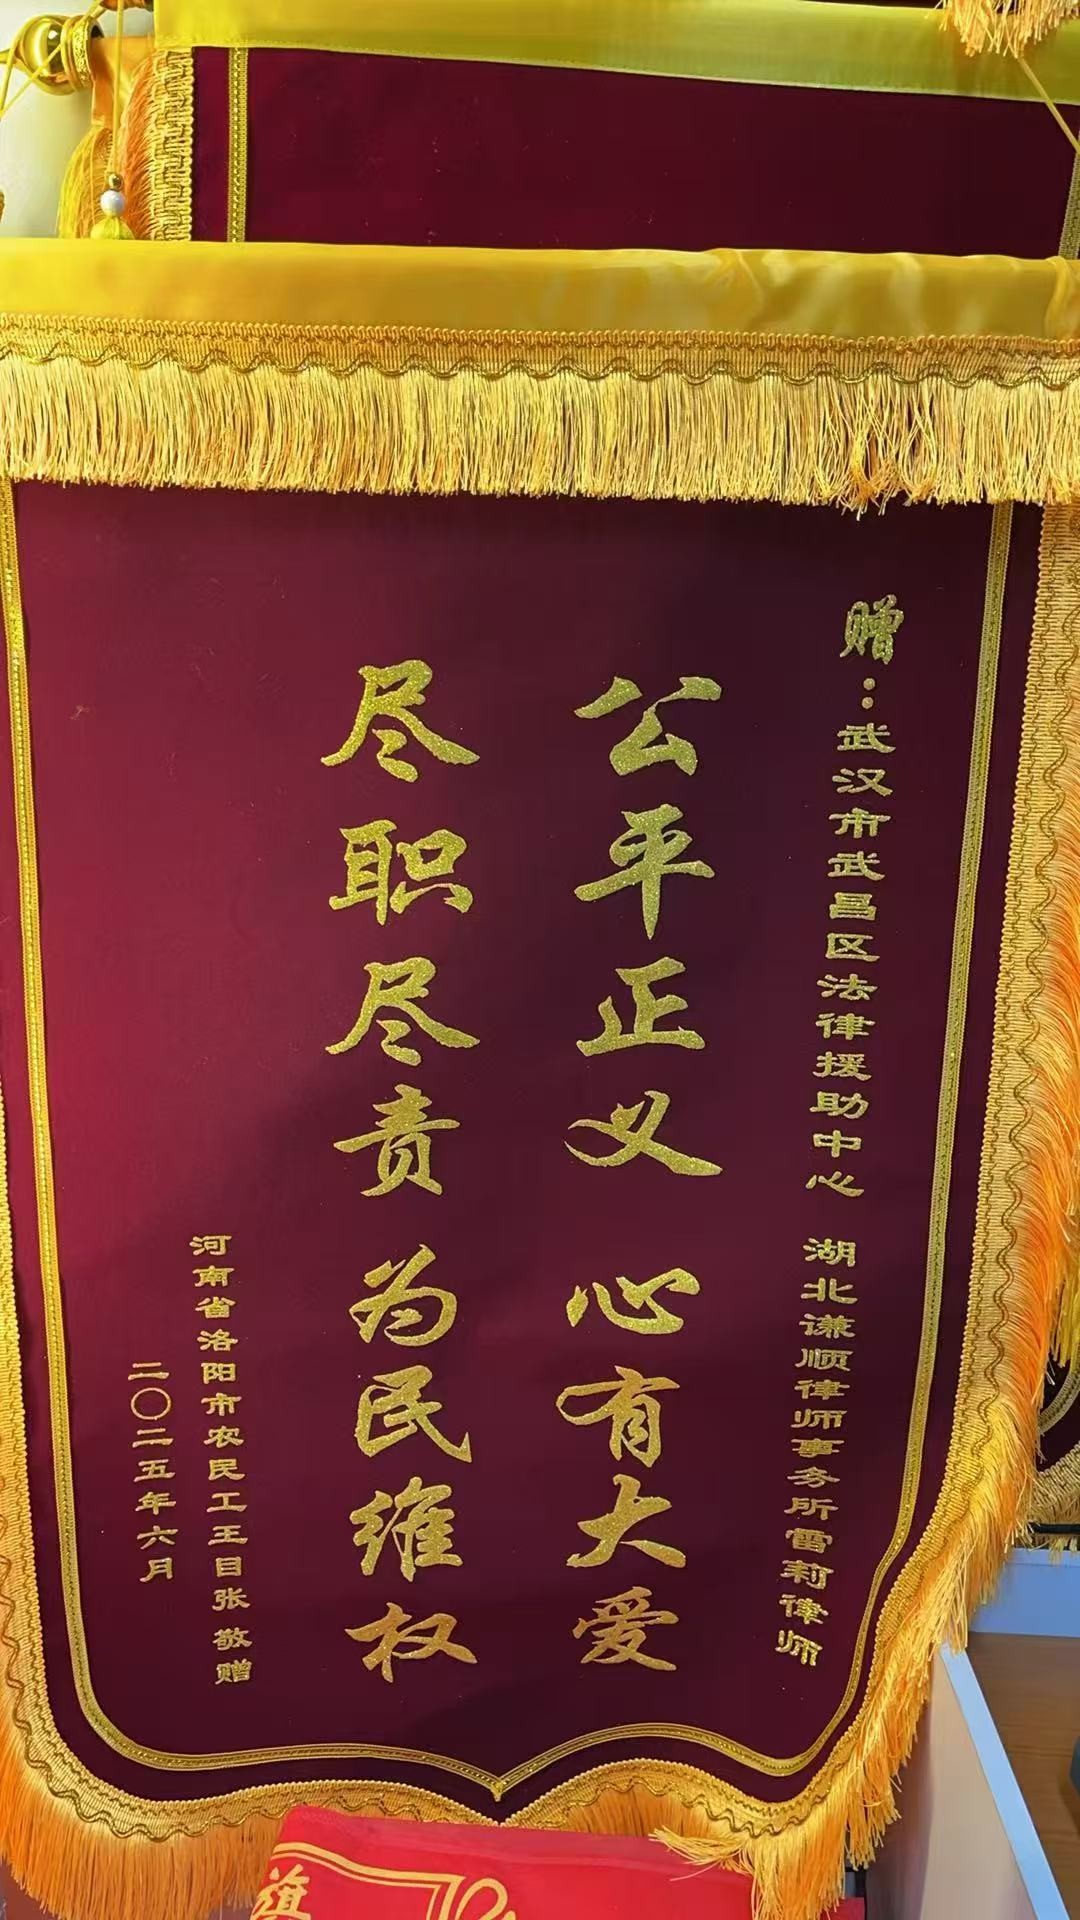 赠：武汉市武昌区法律援助中心 湖北谦顺律师事务所雷莉律师
公平正义 心有大爱
尽职尽责 为民维权
河南省洛阳市农民工王目张 敬赠
二〇二五年六月
旗